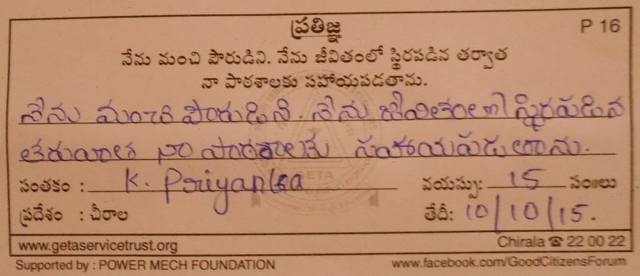 ప్రతిజ్ఞ P 16
నేను మంచి పౌరుడిని. నేను జీవితంలో స్థిరపడిన తర్వాత
నా పాఠశాలకు సహాయపడతాను.
నేను మంచి పౌరుడిని. నేను జీవితంలో స్థిరపడిన
తరువాత నా పాఠశాలకు సహాయపడుతాను.
సంతకం : K. Priyanka వయస్సు: 15 సం॥లు
ప్రదేశం : చీరాల తేదీ: 10/10/15.
www.getaservicetrust.org Chirala ☎ 22 00 22
Supported by : POWER MECH FOUNDATION www.facebook.com/GoodCitizensForum